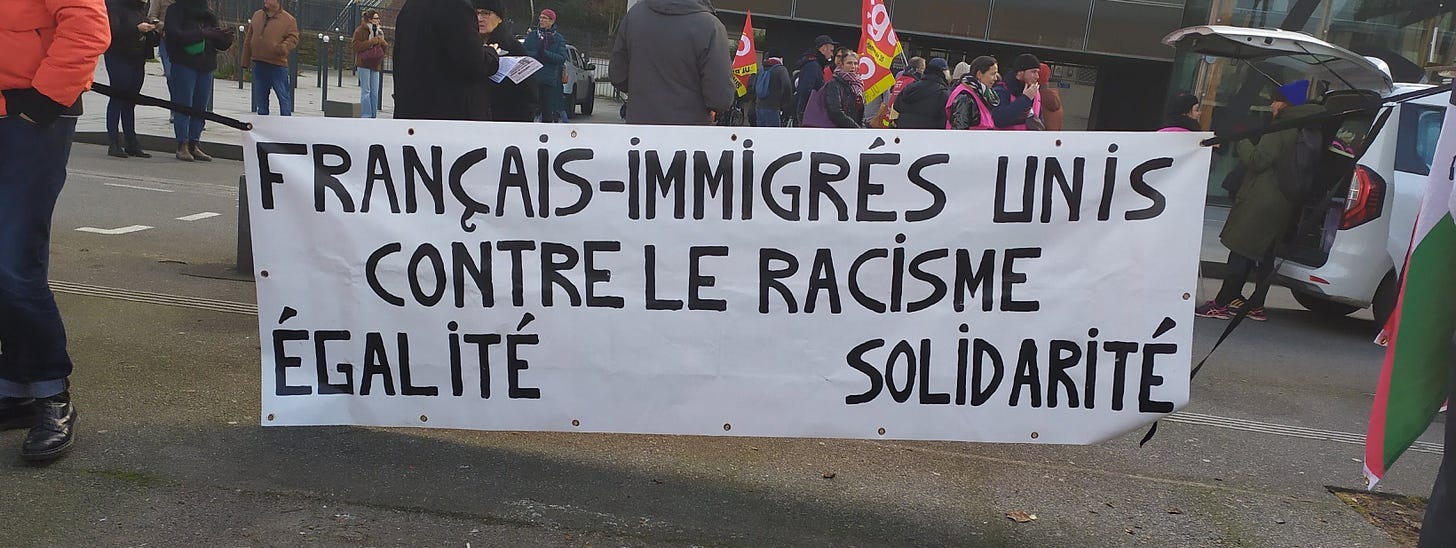 FRANÇAIS-IMMIGRÉS UNIS
CONTRE LE RACISME
ÉGALITÉ SOLIDARITÉ